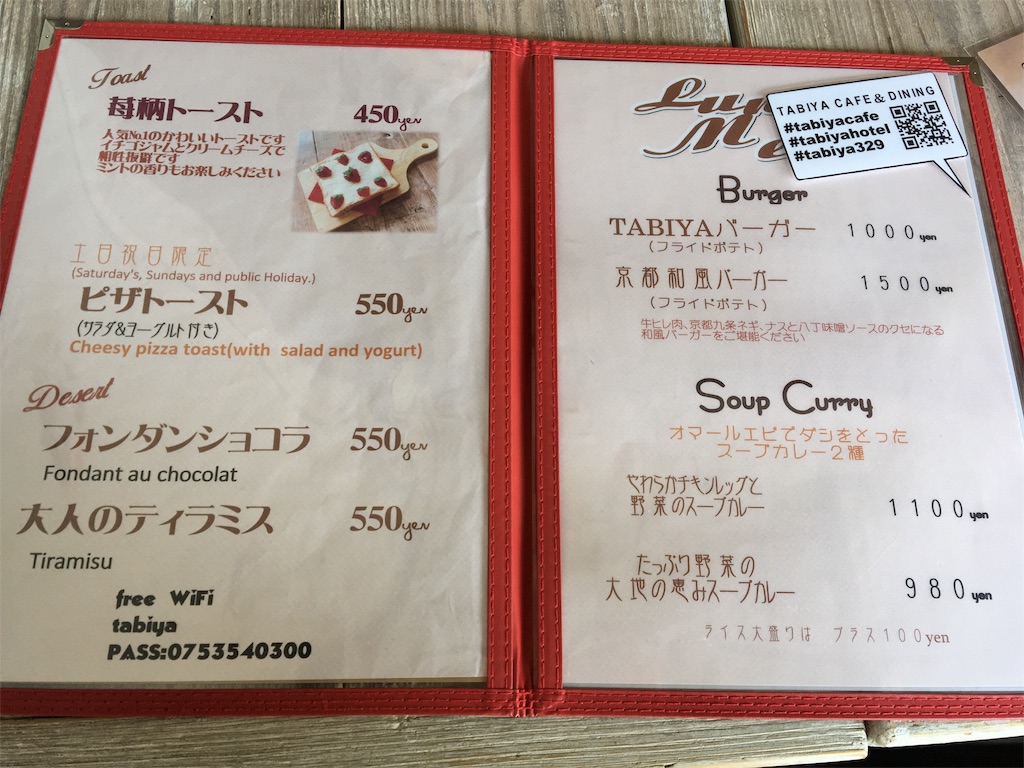 Toast
苺柄トースト 450yen
人気No.1のかわいいトーストです
イチゴジャムとクリームチーズで
相性抜群です
ミントの香りもお楽しみください
土日祝日限定
(Saturday's, Sundays and public Holiday.)
ピザトースト 550yen
(サラダ&ヨーグルト付き)
Cheesy pizza toast(with salad and yogurt)
Desert
フォンダンショコラ 550yen
Fondant au chocolat
大人のティラミス 550yen
Tiramisu
free WiFi
tabiya
PASS:0753540300
TABIYA CAFE & DINING
#tabiyacafe
#tabiyahotel
#tabiya329
Burger
TABIYAバーガー 1000yen
(フライドポテト)
京都和風バーガー 1500yen
(フライドポテト)
牛ヒレ肉、京都九条ネギ、ナスと八丁味噌ソースのクセになる
和風バーガーをご堪能ください
Soup Curry
オマールエビでダシをとった
スープカレー2種
やわらかチキンレッグと
野菜のスープカレー 1100yen
たっぷり野菜の
大地の恵みスープカレー 980yen
ライス大盛りは プラス100yen